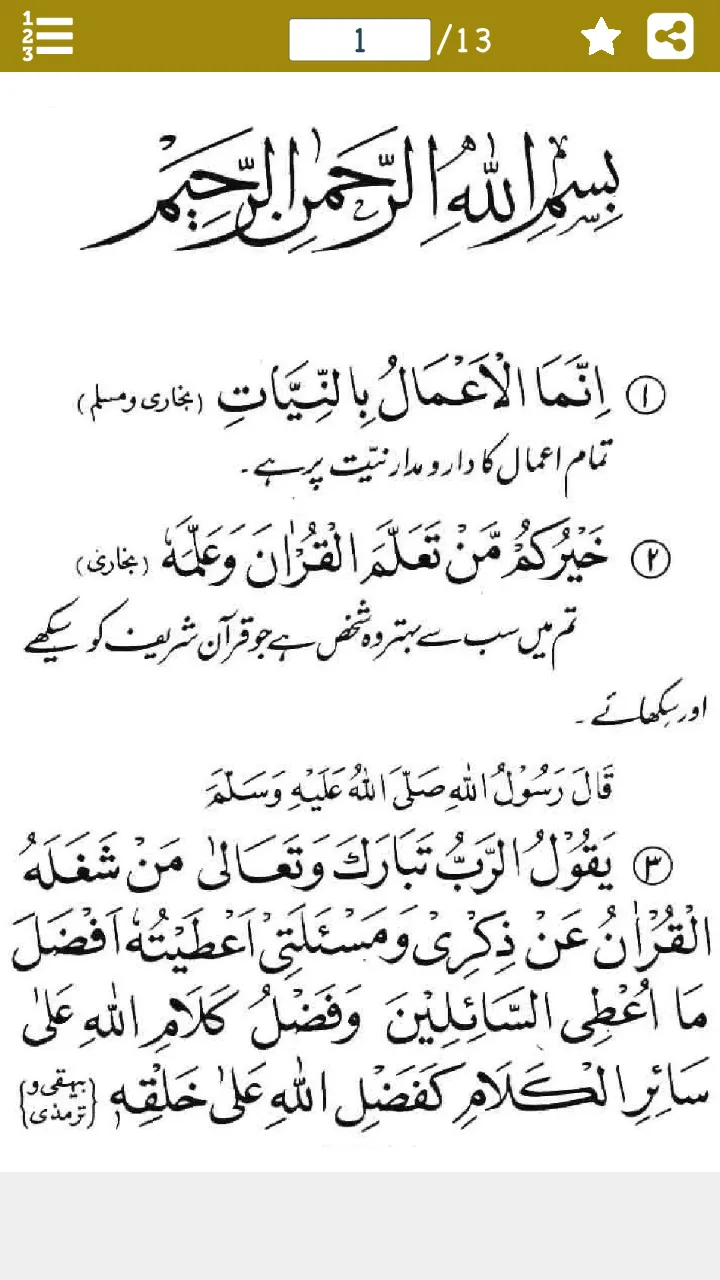 1
2
3
1 /13
بِسْمِ اللهِ الرَّحْمٰنِ الرَّحِيْمِ
① اِنَّمَا الْاَعْمَالُ بِالنِّيَّاتِ (بخاری ومسلم)
تمام اعمال کا دار و مدار نیّت پر ہے۔
② خَيْرُكُمْ مَّنْ تَعَلَّمَ الْقُرْاٰنَ وَعَلَّمَهٗ (بخاری)
تم میں سب سے بہتر وہ شخص ہے جو قرآن شریف کو سیکھے
اور سِکھائے۔
قَالَ رَسُوْلُ اللهِ صَلَّى اللهُ عَلَيْهِ وَسَلَّمَ
③ يَقُوْلُ الرَّبُّ تَبَارَكَ وَتَعَالىٰ مَنْ شَغَلَهُ
الْقُرْاٰنُ عَنْ ذِكْرِىْ وَمَسْئَلَتِىْ اَعْطَيْتُهٗ اَفْضَلَ
مَا اُعْطِى السَّائِلِيْنَ وَفَضْلُ كَلَامِ اللهِ عَلىٰ
سَائِرِ الْكَلَامِ كَفَضْلِ اللهِ عَلىٰ خَلْقِهٖ {بیہقی و ترمذی}